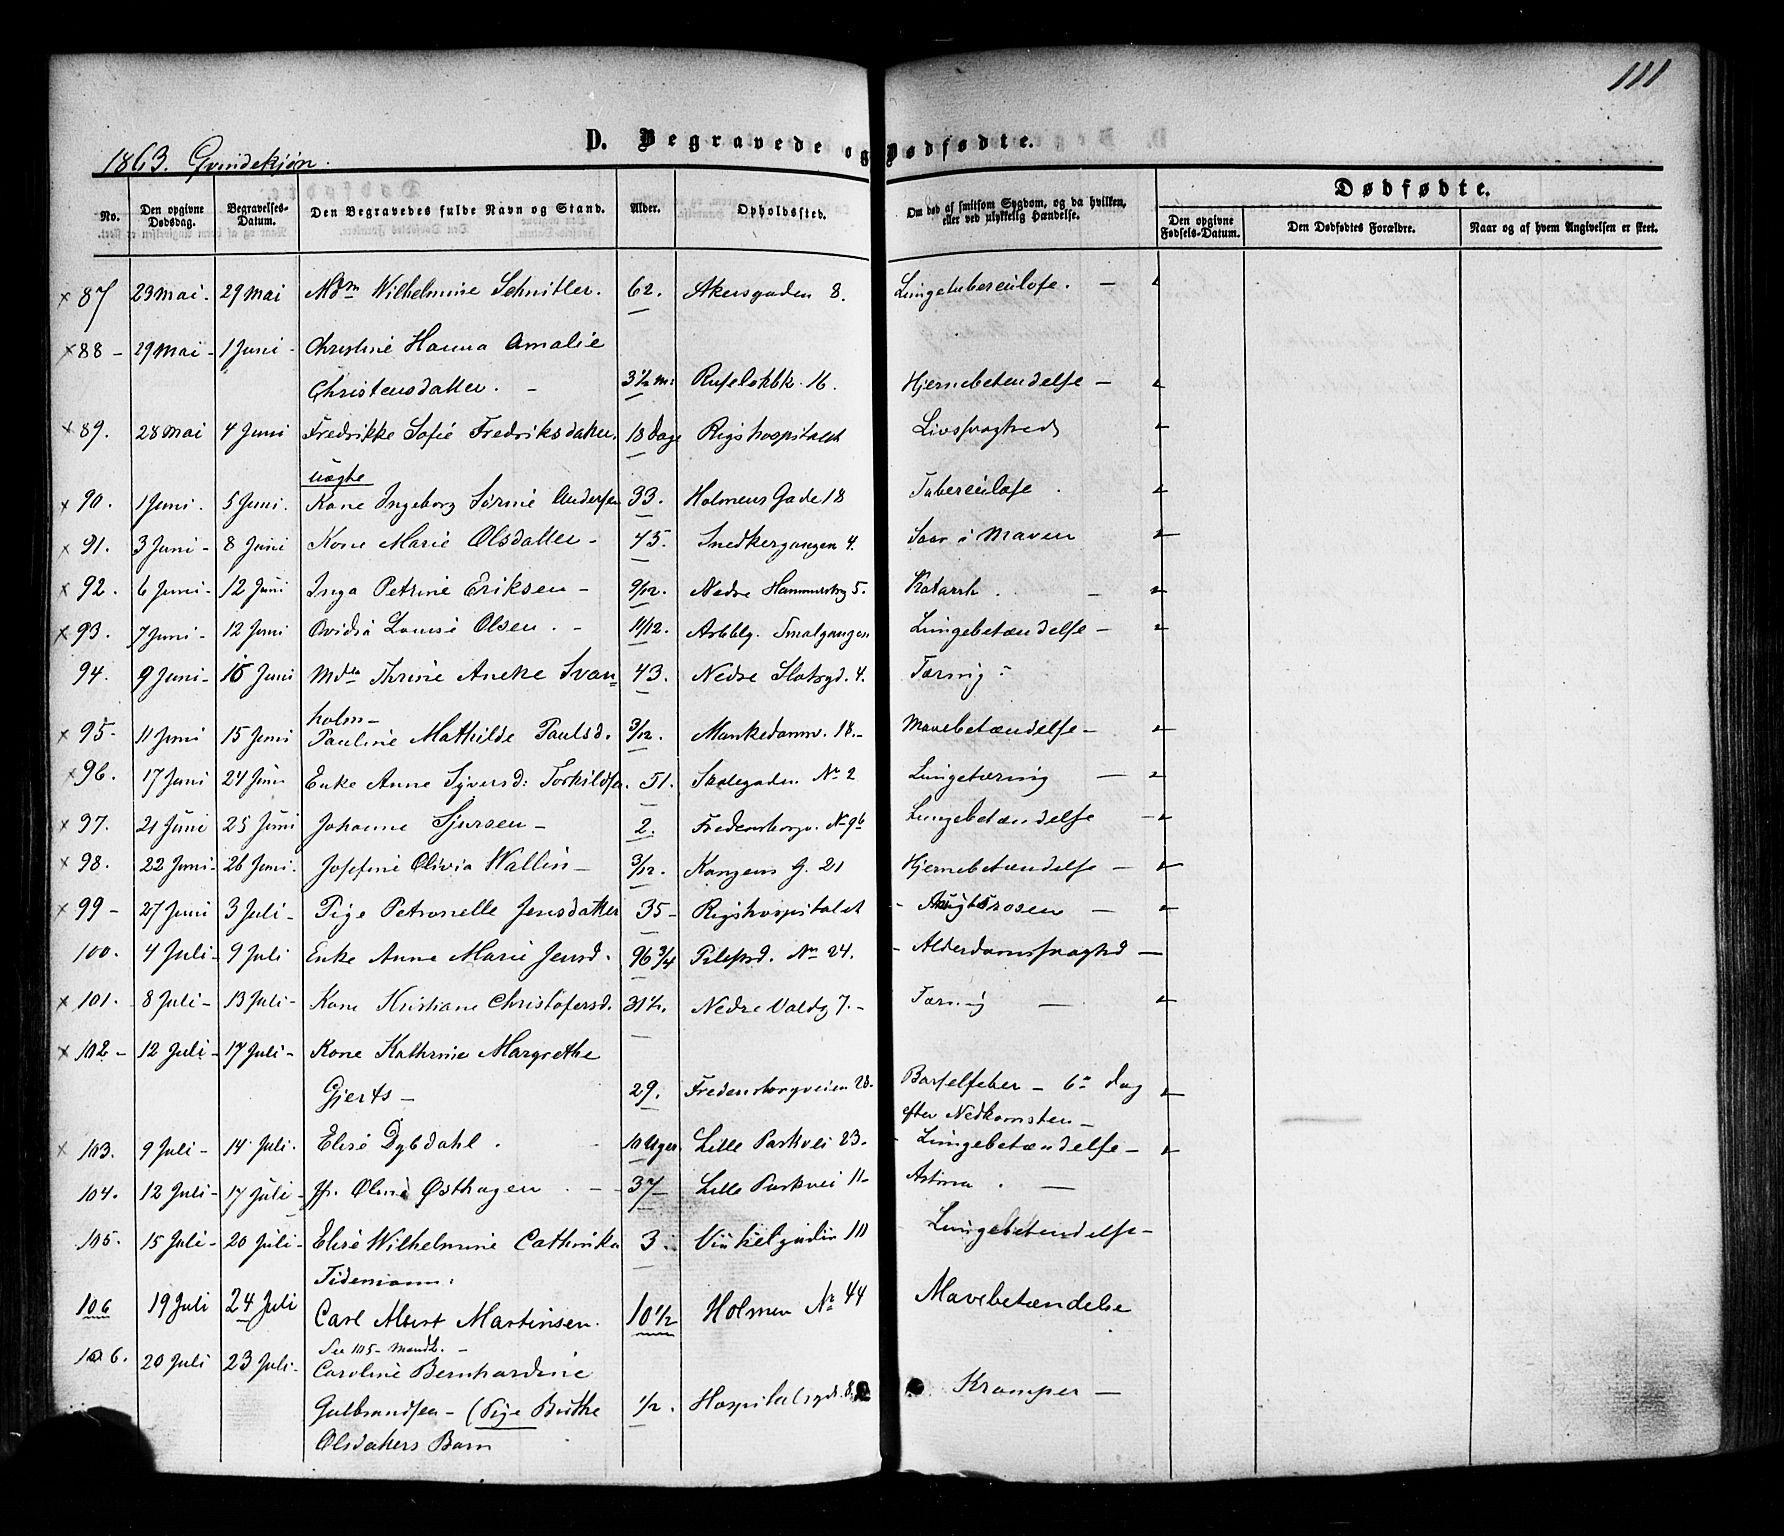 111
D. Begravede og Dødfødte.
1863. Qvindekjøn.
Dødfødte.
No. Den opgivne Dødsdag. Begravelses-Datum. Den Begravedes fulde Navn og Stand. Alder. Opholdssted. Om død af smitsom Sygdom, og da hvilken, eller ved ulykkelig Hændelse. Den opgivne Fødsels-Datum. Den Dødfødtes Forældre. Naar og af hvem Angivelsen er skeet.
× 87 23 Mai. 29 Mai Mdm Wilhelmine Schnitler. 62. Akersgaden 8. Lungetuberculose. —
× 88 – 29 Mai – 1 Juni – Christine Hanna Amalie
Christensdatter. – 3½ m: 16. Hjernebetendelse –
× 89. 28 Mai 4 Juni Fredrikke Sofie Fredriksdatter. 18 Dage Rigshospitalet Livssvaghed
uægte
× 90. 1 Juni. 5 Juni. Kone Ingeborg Sørine Andersen 33. Holmens Gade 18 Tuberculose .
× 91. 3 Juni – 8 Juni Kone Marie Olsdatter – 45. Snedkergangen 4. Saar i Maven
× 92. 6 Juni – 12 Juni Inga Petrine Eriksen – 9/12. Nedre Hammersbg 5. Katarrh . –
× 93. 7 Juni – 12 Juni Ovidia Lovise Olsen . – 11/12. Arbbg. Smalgangen Lungebetændelse –
94. 9 Juni – 15 Juni Thrine Aneke Svan= 43. Nedre Slotsgd. 4. Tæring
holm –
× 95 – 11 Juni 15 Juni Pauline Mathilde Paulsd. 3/12. Munkedamv. 18. – Mavebetændelse –
× 96. 17 Juni 24 Juni Enke Anne Syversd: Torkildsen. 51. Skolegaden No 2 Lungetæring —
× 97. 21 Juni 25 Juni Johanne Sjursen – 2. Fredensborgv. No 9b Lungebetændelse –
× 98. 22 Juni – 26 Juni. Josefine Olivia Wallin – 3/12. Kongens G. 21 Hjernebetændelse —
× 99 – 27 Juni 3 Juli – Pige Petronelle Jensdatter 35 – Rigshospitalet –
100. 4 Juli – 9 Juli Enke Anne Marie Jensd. 96 3/4 Pilestrd. No 24. – Alderdomssvaghd —
× 101. 8 Juli – 13 Juli – Kone Kristiane Christofersd. 31½. Nedre Voldg 7. – Tæring —
× 102 – 12 Juli – 17 Juli – Kone Kathrine Margrethe
Gjerts – 29. Fredensborgveien 28. Barselfeber – 6te Dag
efter Nedkomsten –
× 103. 9 Juli – 14 Juli. Elise Dybdahl . 10 Uger. Lille Parkvei 23. – Lungebetændelse –
104. 12 Juli – 17 Juli – Jfr. Oline Østhagen . – – 37 – Lille Parkvei 11 – Astma . —
105. 15 Juli – 20 Juli – Elise Wilhelmine Cathrike 3. Vinkelgaden 10 Lungebetendelse –
Tidemann.
106 19 Juli 24 Juli Carl Albert Martinsen. 10 1/2 Holmen No 44 Mavebetændelse
See 105 – Mandk. –
106. 20 Juli 23 Juli – Caroline Bernhardine
Gulbrandsen – (Pige Birthe 1/2. Hospitalsgd. 8 Kramper —
Olsdatters Barn